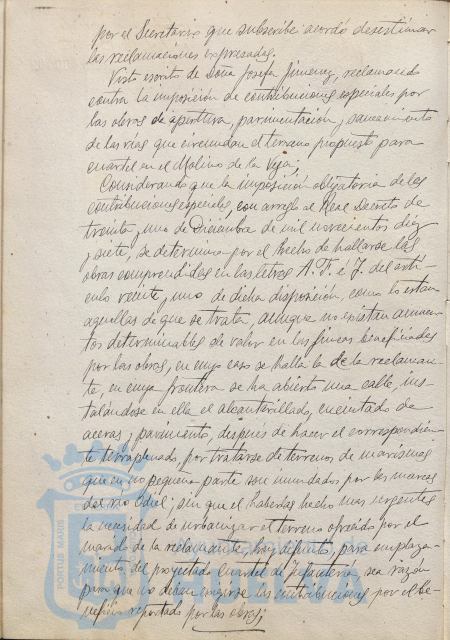 por el Secretario que subscribe acordó desestimar
las reclamaciones expresadas.
Visto escrito de Doña Josefa Jimenez, reclamando
contra la imposición de contribuciones especiales por
las obras de apertura, pavimentación y saneamiento
de las vías que circundan el terreno propuesto para
cuartel en el Molino de la Vega;
Considerando que la imposición obligatoria de las
contribuciones especiales, con arreglo al Real Decreto de
treinta y uno de Diciembre de mil novecientos diez
y siete, se determina por el hecho de hallarse las
obras comprendidas en las letras A. F. é J. del artí
culo veinte y uno de dicha disposición, como lo estan
aquellas de que se trata, aunque no existan aumen
tos determinables de valor en las fincas beneficiadas
por las obras, en cuyo caso se halla la de la reclaman
te, en cuya frontera se ha abierto una calle, ins
talándose en ella el alcantarillado, encintado de
aceras y pavimento, después de hacer el correspondien
te terraplenado, por tratarse de terrenos de marismas
que en no pequeña parte son inundados por las mareas
del río Odiel; sin que el haberlas hecho mas urgentes
la necesidad de urbanizar el terreno ofrecido por el
marido de la reclamante, hoy difunto, para emplaza-
miento del proyectado Cuartel de Infantería, sea razón
para que no deban exigirse las contribuciones por el be-
neficio reportado por las obras;
PORTUS MARIS